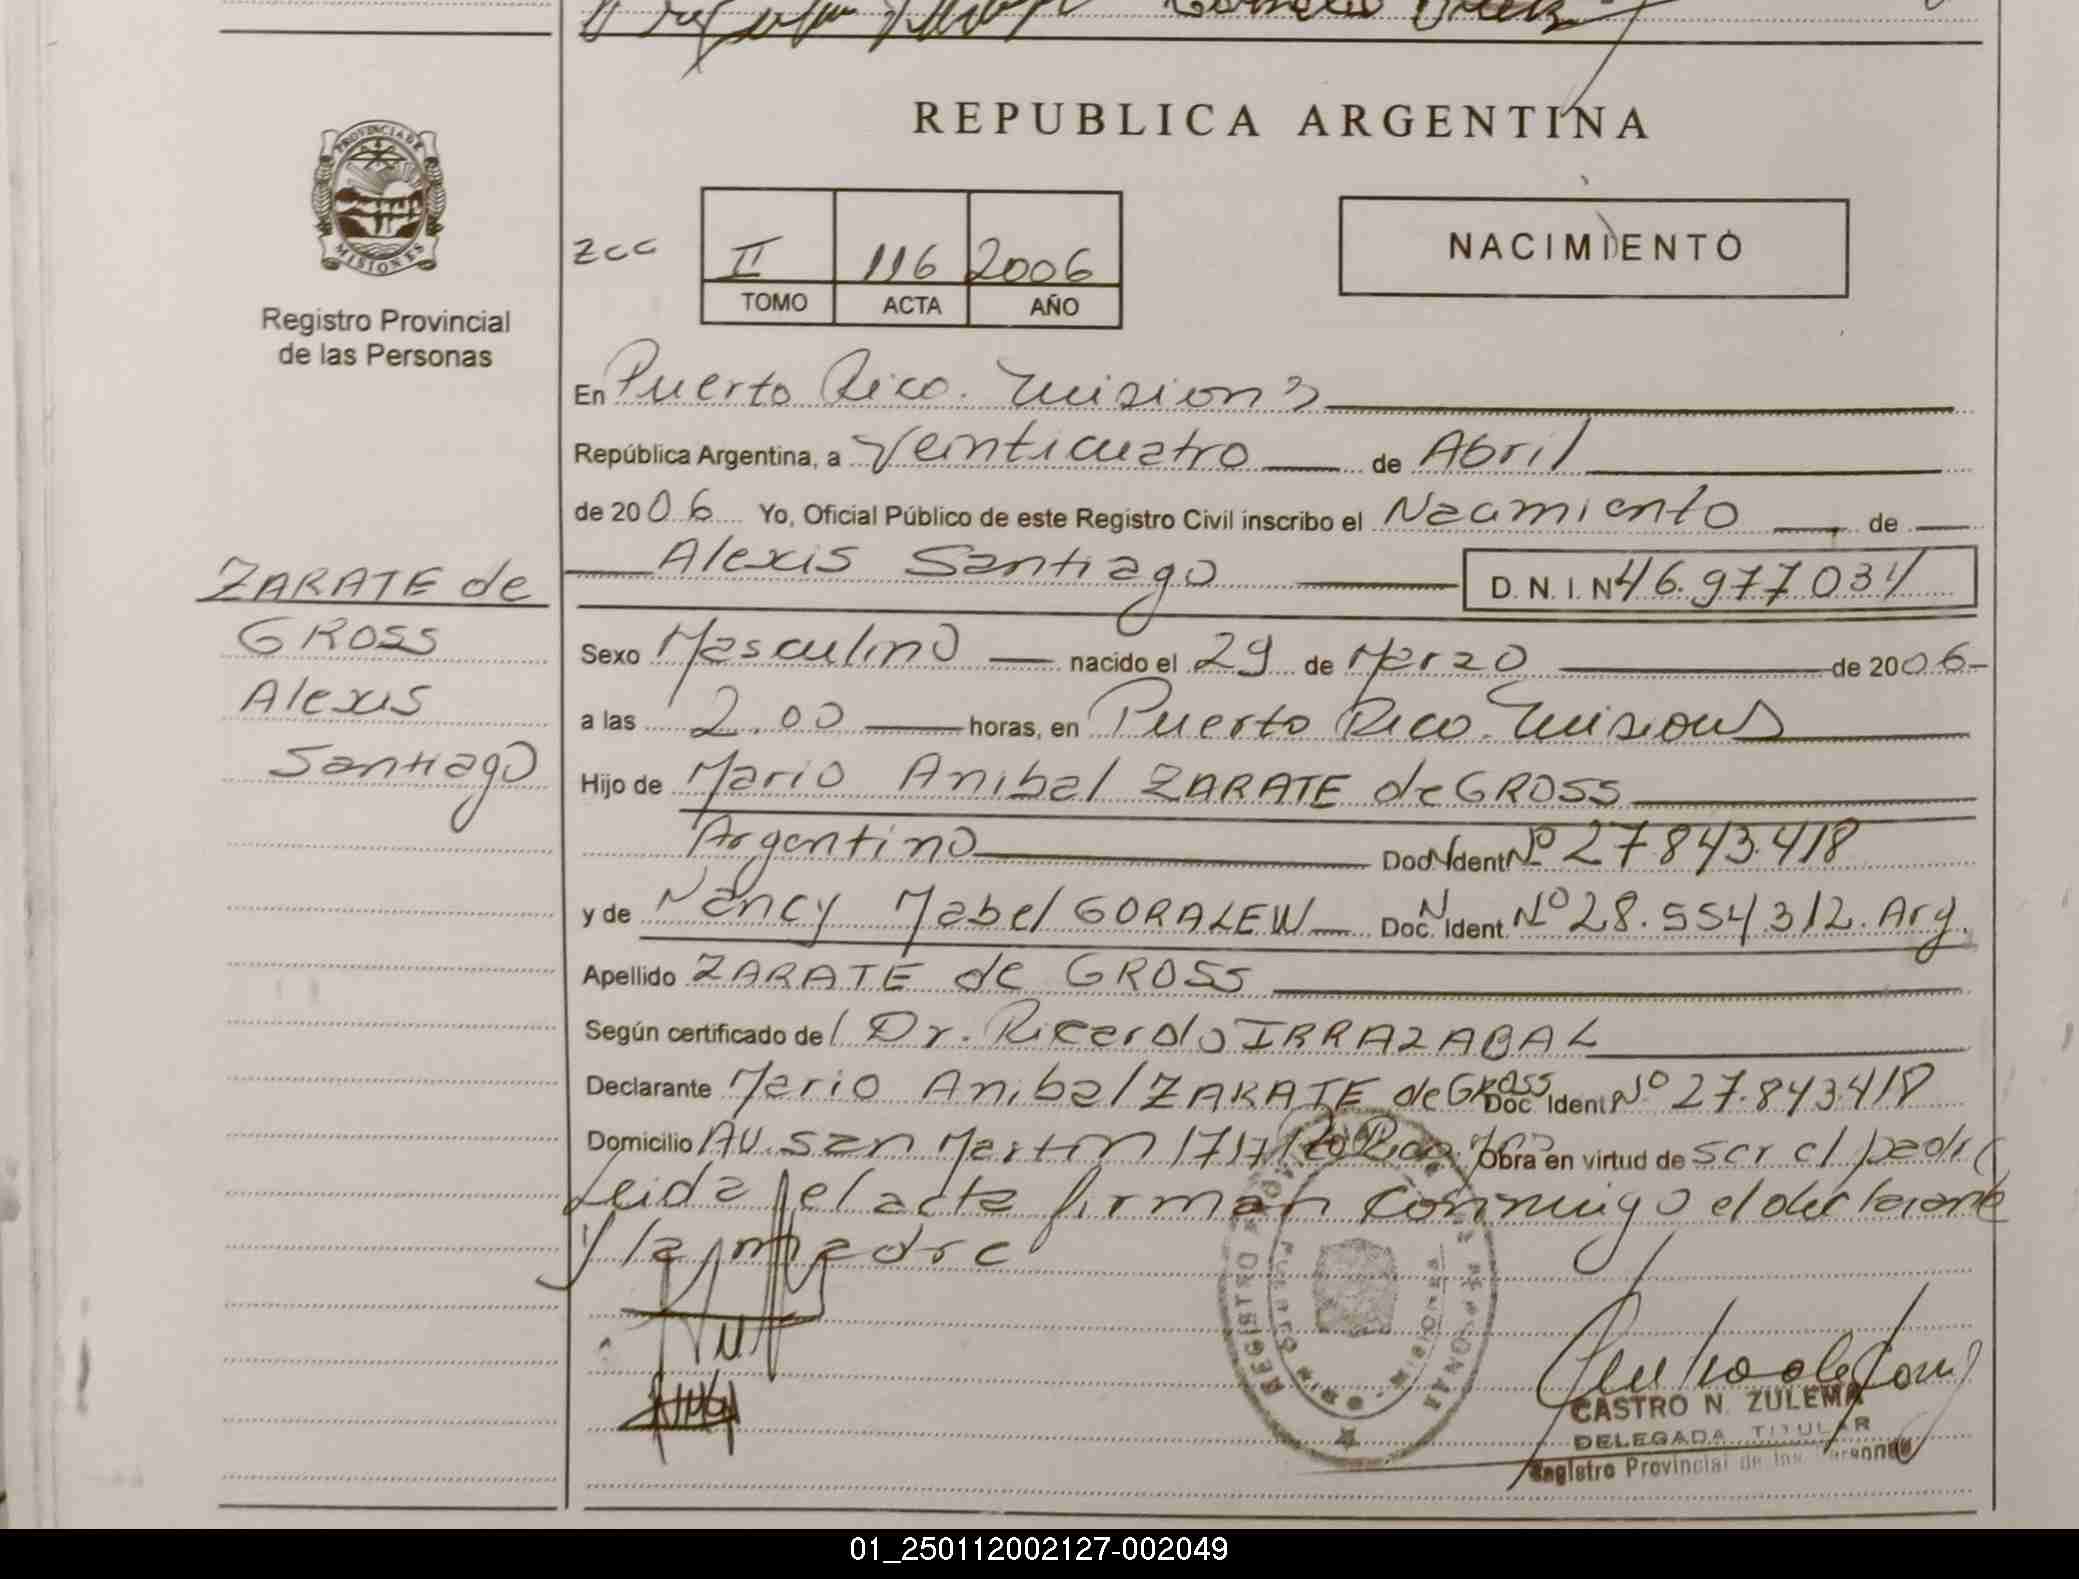 REPUBLICA ARGENTINA
PROVINCIA DE
MISIONES
Registro Provincial
de las Personas
ZCC
II 116 2006
TOMO ACTA AÑO
NACIMIENTO
En Puerto Rico. Misiones
República Argentina, a Veinticuatro de Abril
de 2006 Yo, Oficial Público de este Registro Civil inscribo el Nacimiento de
Alexis Santiago D. N. I. Nº 46.977.034
ZARATE de
GROSS
Alexis
Santiago
Sexo Masculino nacido el 29 de Marzo de 2006
a las 2.00 horas, en Puerto Rico. Misiones
Hijo de Mario Anibal ZARATE de GROSS
Argentino Doc. N Ident. Nº 27.843.418
y de Nancy Mabel GORALEW Doc. N Ident. Nº 28.554.312. Arg.
Apellido ZARATE de GROSS
Según certificado del Dr. Ricardo IRRAZABAL
Declarante Mario Anibal ZARATE de GROSS Doc Ident Nº 27.843.418
Domicilio AV. San Martin 1717 Pto Rico. Obra en virtud de ser el padre
Leida el acta firman conmigo el declarante
y la madre
REGISTRO
PUERTO RICO - MISIONES
CASTRO N. ZULEMA
DELEGADA TITULAR
Registro Provincial de las Personas
01_250112002127-002049